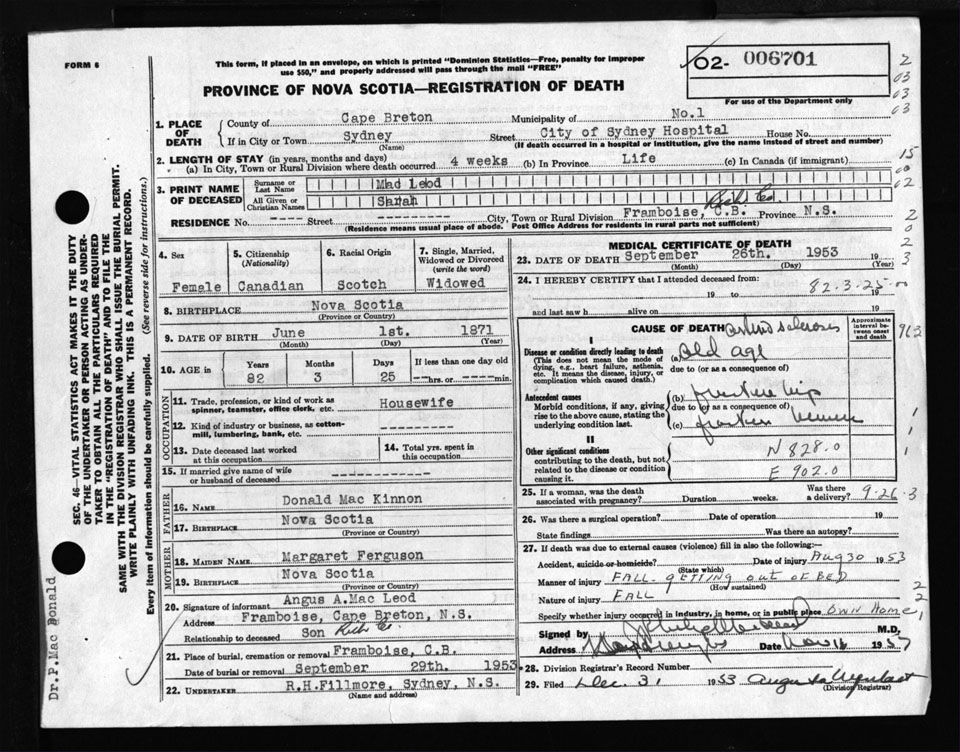 FORM 6
This form, if placed in an envelope, on which is printed "Dominion Statistics—Free, penalty for improper
use $50," and properly addressed will pass through the mail "FREE"
O2- 006701
For use of the Department only
PROVINCE OF NOVA SCOTIA—REGISTRATION OF DEATH
1. PLACE OF DEATH
County of Cape Breton Municipality of No.1
If in City or Town Sydney Street City of Sydney Hospital House No.
(Name) (If death occurred in a hospital or institution, give the name instead of street and number)
2. LENGTH OF STAY (in years, months and days)
(a) In City, Town or Rural Division where death occurred 4 weeks (b) In Province Life (c) In Canada (if immigrant)
3. PRINT NAME OF DECEASED
Surname or Last Name Mac Leod
All Given or Christian Names Sarah
Rich Co.
RESIDENCE No. ---- Street -------- City, Town or Rural Division Framboise, C.B. Province N.S.
(Residence means usual place of abode. Post Office Address for residents in rural parts not sufficient)
4. Sex
Female
5. Citizenship
(Nationality)
Canadian
6. Racial Origin
Scotch
7. Single, Married,
Widowed or Divorced
(write the word)
Widowed
8. BIRTHPLACE Nova Scotia
(Province or Country)
9. DATE OF BIRTH June 1st. 1871
(Month) (Day) (Year)
10. AGE in
Years Months Days If less than one day old
82 3 25 --- hrs. or --- min.
OCCUPATION
11. Trade, profession, or kind of work as
spinner, teamster, office clerk, etc. Housewife
12. Kind of industry or business, as cotton-
mill, lumbering, bank, etc.
13. Date deceased last worked
at this occupation
14. Total yrs. spent in
this occupation
15. If married give name of wife
or husband of deceased
FATHER
16. NAME Donald Mac Kinnon
17. BIRTHPLACE Nova Scotia
(Province or Country)
MOTHER
18. MAIDEN NAME Margaret Ferguson
19. BIRTHPLACE Nova Scotia
(Province or Country)
20. Signature of informant Angus A.Mac Leod
Address Framboise, Cape Breton, N.S.
Relationship to deceased Son Rich Co.
21. Place of burial, cremation or removal Framboise, C.B.
Date of burial or removal September 29th. 1953.
22. UNDERTAKER R.H.Fillmore, Sydney, N.S.
(Name and address)
MEDICAL CERTIFICATE OF DEATH
23. DATE OF DEATH September 26th. 1953 19
(Month) (Day) (Year)
24. I HEREBY CERTIFY that I attended deceased from:
82.3.25
19 to 19
and last saw h alive on 19
CAUSE OF DEATH
Approximate interval between onset and death
I
Disease or condition directly leading to death
(This does not mean the mode of
dying, e.g., heart failure, asthenia,
etc. It means the disease, injury, or
complication which caused death.)
(a) old age
due to (or as a consequence of)
Antecedent causes
Morbid conditions, if any, giving
rise to the above cause, stating the
underlying condition last.
(b) fracture hip
due to (or as a consequence of)
(c)
II
Other significant conditions
contributing to the death, but not
related to the disease or condition
causing it.
N 828.0
E 902.0
25. If a woman, was the death
associated with pregnancy? Duration weeks. Was there
a delivery? 9-26-3
26. Was there a surgical operation? Date of operation 19
State findings Was there an autopsy?
27. If death was due to external causes (violence) fill in also the following:—
Accident, suicide or homicide? Date of injury Aug 30 1953
(State which)
Manner of injury FALL- getting out of BED
(How sustained)
Nature of injury FALL
Specify whether injury occurred in industry, in home, or in public place Own Home
Signed by M.D.
Address Date Nov 1957
28. Division Registrar's Record Number
29. Filed Dec. 31 1953
(Division Registrar)
SEC. 46—VITAL STATISTICS ACT MAKES IT THE DUTY
OF THE UNDERTAKER OR PERSON ACTING AS UNDER-
TAKER TO OBTAIN ALL THE PARTICULARS REQUIRED
IN THE "REGISTRATION OF DEATH" AND TO FILE THE
SAME WITH THE DIVISION REGISTRAR WHO SHALL ISSUE THE BURIAL PERMIT.
WRITE PLAINLY WITH UNFADING INK. THIS IS A PERMANENT RECORD.
Every item of information should be carefully supplied. (See reverse side for instructions.)
Dr.P.Mac Donald